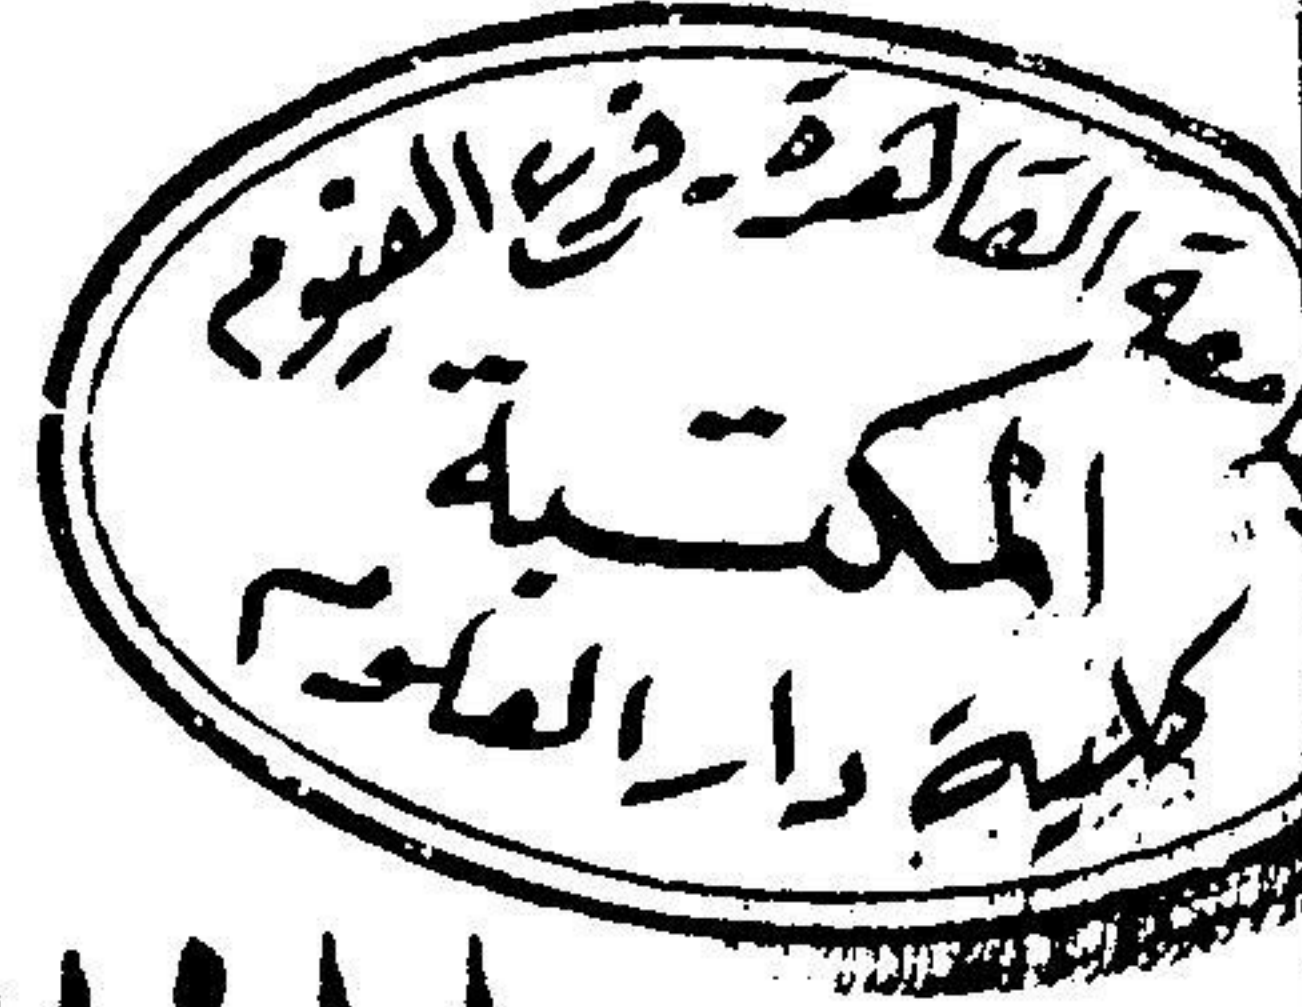 جامعة القاهرة - فرع الفيوم
المكتبة
كلية دار العلوم